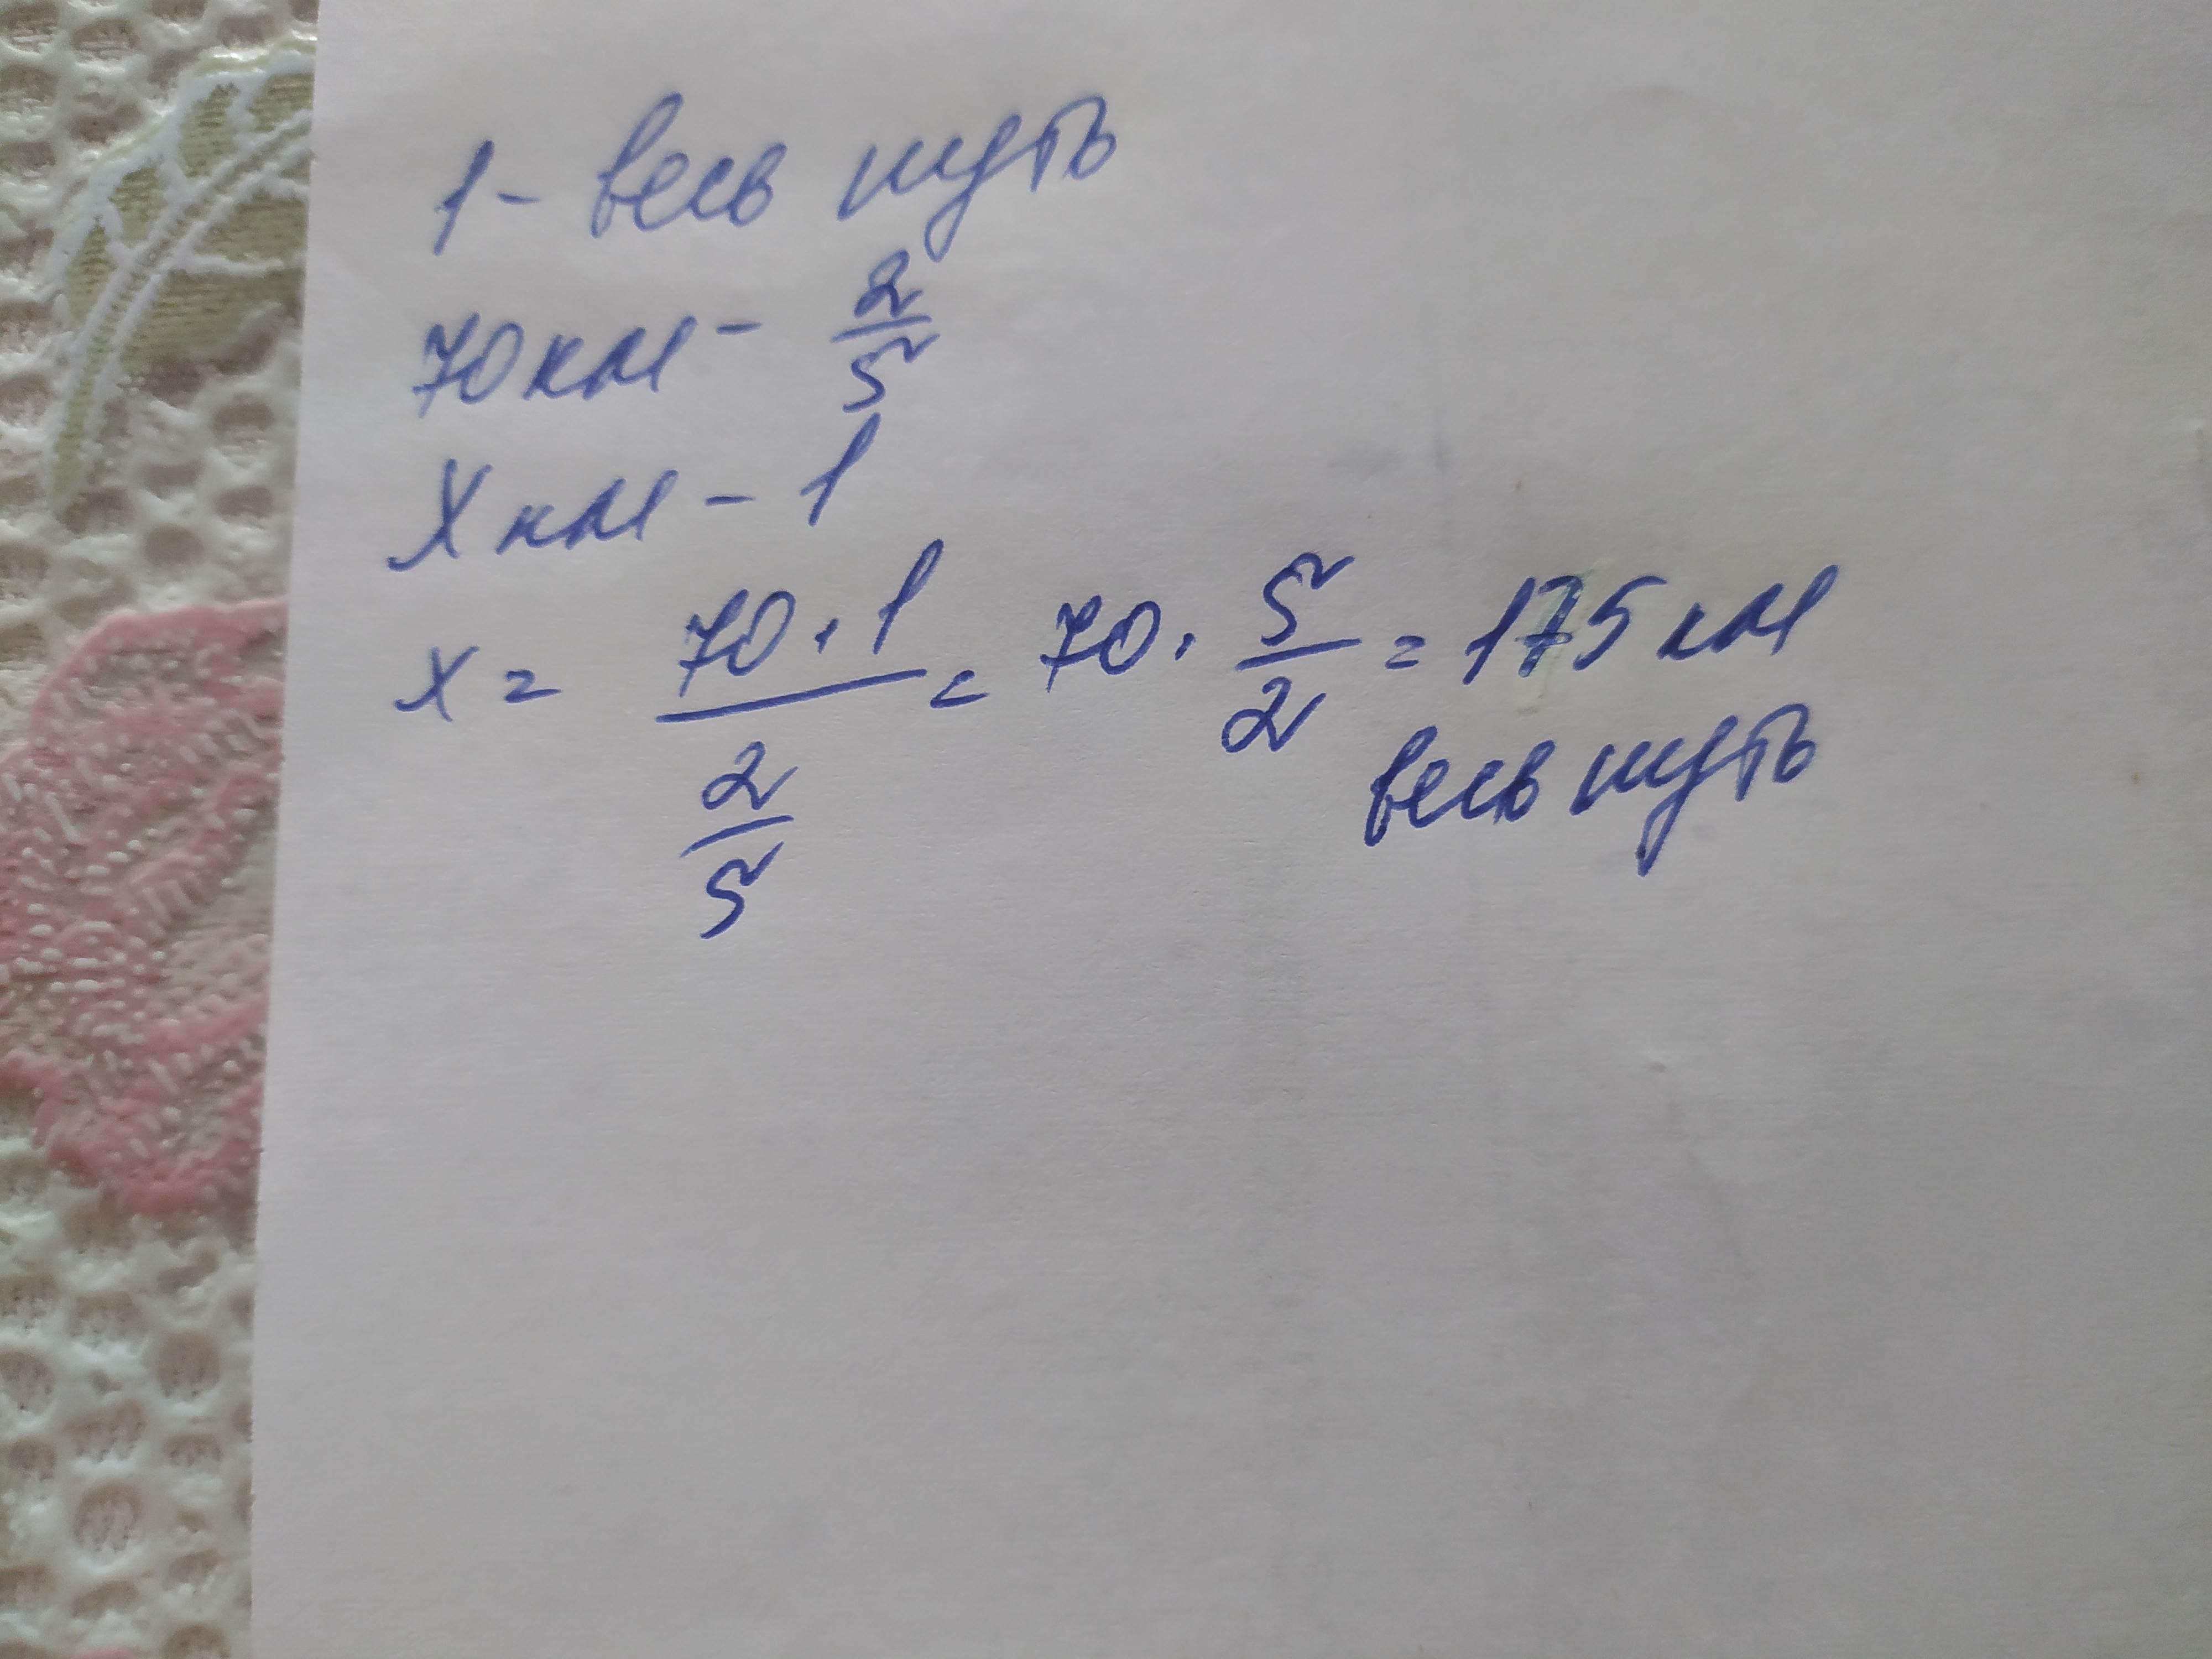 1 - весь путь
70 км - 2/5
X км - 1
x = 70·1 / 2/5 = 70 · 5/2 = 175 км
весь путь